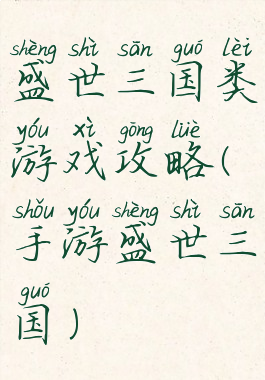 shèng shì sān guó lèi
盛世三国类
yóu xì gōng lüè
游戏攻略(
shǒu yóu shèng shì sān
手游盛世三
guó
国)